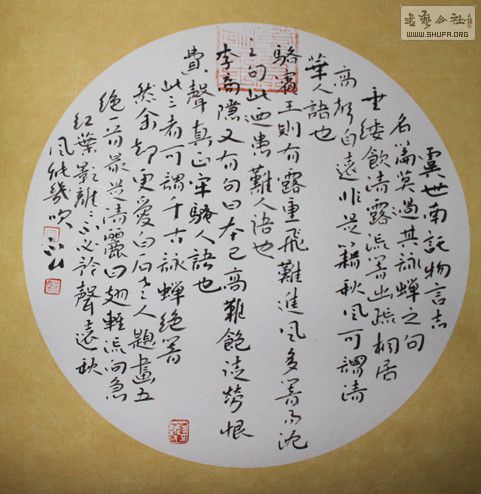 虞世南託物言志
名篇莫過其詠蟬之句
垂緌飲清露流響出疏桐居
高聲自遠非是藉秋風可謂清
華人語也
駱賓王則有露重飛難進風多響易沈
之句此迺患難人語也
李商隱又有句曰本已高難飽徒勞恨
費聲真正牢騷人語也
此三者可謂千古詠蟬絕響
然余却更愛白石老人題畫五
絕一首最是清麗曰翅輕流向急
紅葉影離〻不必矜聲遠秋
風能幾吹
書藝公社
WWW.SHUFA.ORG